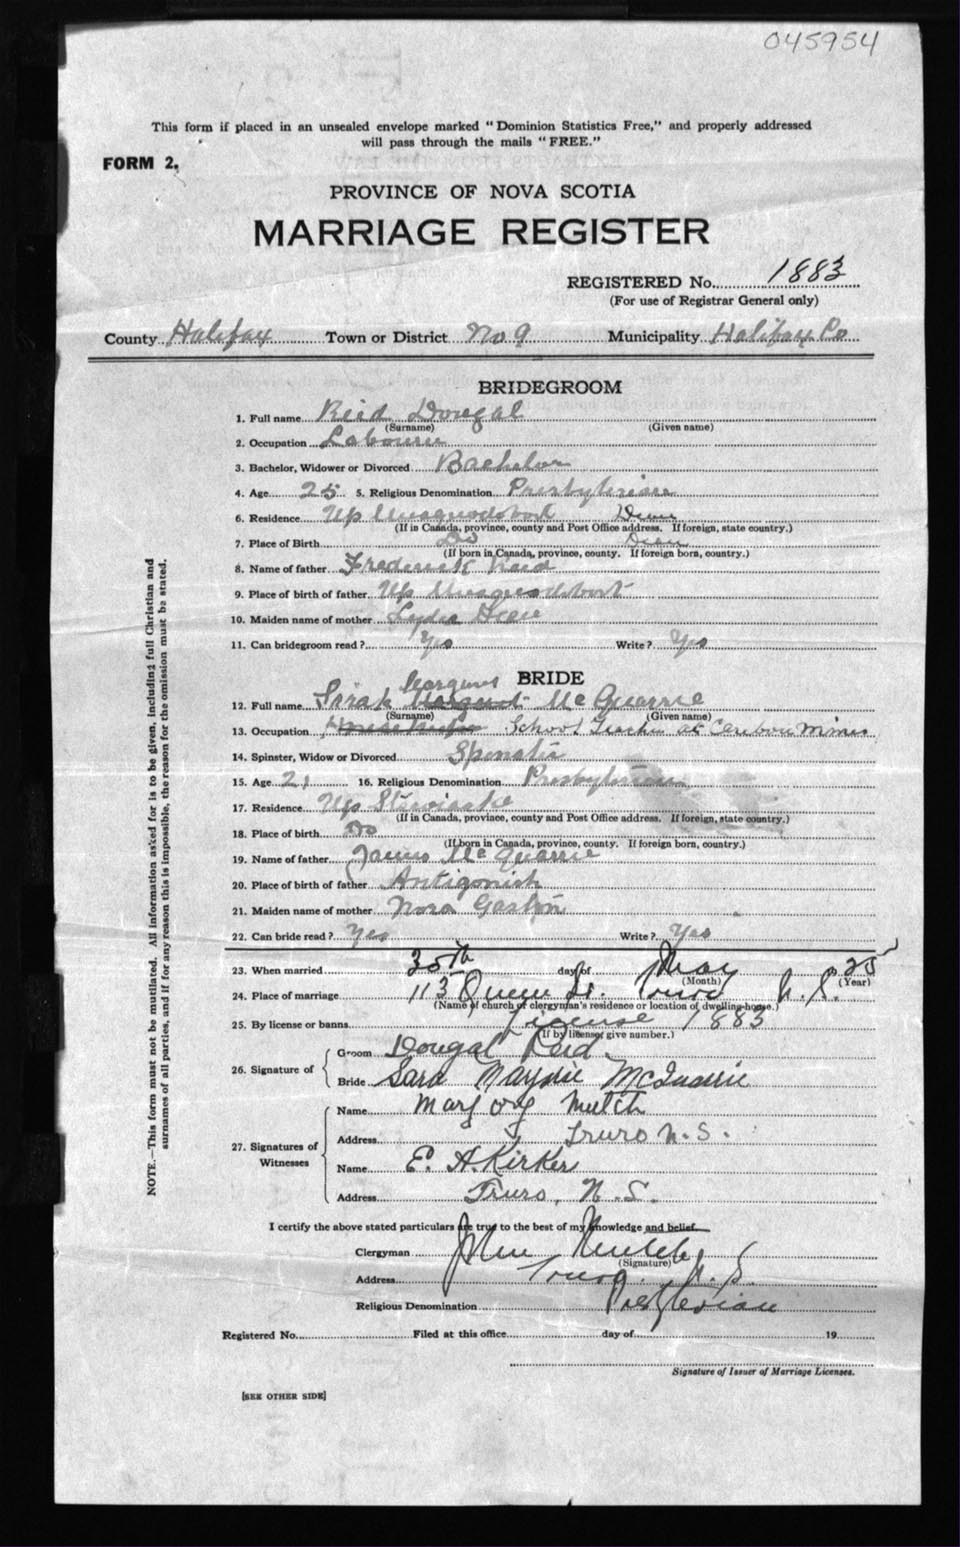 045954
This form if placed in an unsealed envelope marked "Dominion Statistics Free," and properly addressed
will pass through the mails "FREE."
FORM 2.
PROVINCE OF NOVA SCOTIA
MARRIAGE REGISTER
REGISTERED No. 1883
(For use of Registrar General only)
County Halifax Town or District No 9 Municipality Halifax Co
BRIDEGROOM
1. Full name Reid Dougal
(Surname) (Given name)
2. Occupation Labourer
3. Bachelor, Widower or Divorced Bachelor
4. Age 25 5. Religious Denomination Presbyterian
6. Residence Up Musquodoboit
(If in Canada, province, county and Post Office address. If foreign, state country.)
7. Place of Birth Do
(If born in Canada, province, county. If foreign born, country.)
8. Name of father Frederick Reid
9. Place of birth of father Up Musquodoboit
10. Maiden name of mother Lydia
11. Can bridegroom read? Yes Write? Yes
BRIDE
12. Full name Sarah McQuarrie
(Surname) (Given name)
13. Occupation School Teacher at Caribou Mines
14. Spinster, Widow or Divorced Spinster
15. Age 21 16. Religious Denomination Presbyterian
17. Residence Up Stewiacke
(If in Canada, province, county and Post Office address. If foreign, state country.)
18. Place of birth Do
(If born in Canada, province, county. If foreign born, country.)
19. Name of father James McQuarrie
20. Place of birth of father Antigonish
21. Maiden name of mother Nora Gaston
22. Can bride read? Yes Write? Yes
23. When married day of May
(Month) (Year)
24. Place of marriage 115 Queen St. Truro N. S.
(Name of church or clergyman's residence or location of dwelling-house.)
25. By license or banns License 1883
(If by license, give number.)
26. Signature of
Groom Dougal Reid.
Bride Sara McQuarrie
27. Signatures of Witnesses
Name Marjory Mutch
Address Truro N. S.
Name E. A. Kirker
Address Truro, N. S.
I certify the above stated particulars are true to the best of my knowledge and belief.
Clergyman John Mutch
(Signature)
Address Truro N. S.
Religious Denomination Presbyterian
Registered No. Filed at this office day of 19
Signature of Issuer of Marriage Licenses.
[SEE OTHER SIDE]
NOTE.—This form must not be mutilated. All information asked for is to be given, including full Christian and
surnames of all parties, and if for any reason this is impossible, the reason for the omission must be stated.